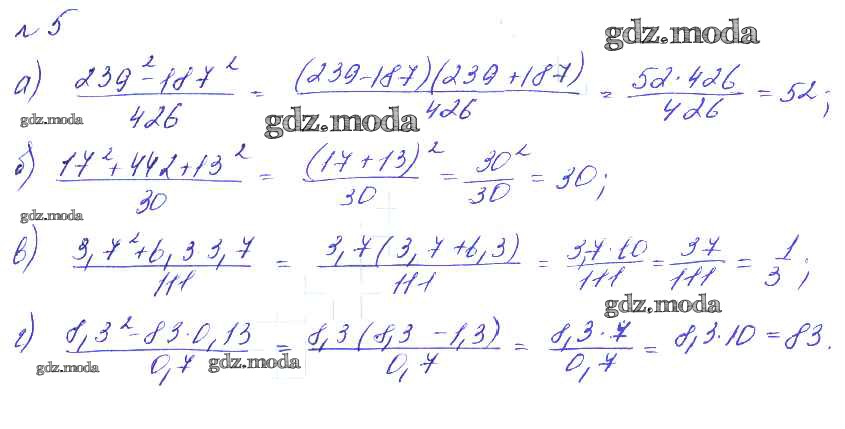 № 5
gdz.moda
а) (239² - 187²)/426 = ((239 - 187)(239 + 187))/426 = (52 · 426)/426 = 52;
gdz.moda
gdz.moda
б) (17² + 442 + 13²)/30 = (17 + 13)²/30 = 30²/30 = 30;
gdz.moda
в) (3,7² + 6,3 3,7)/111 = (3,7(3,7 + 6,3))/111 = (3,7 · 10)/111 = 37/111 = 1/3;
gdz.moda
г) (8,3² - 83 · 0,13)/0,7 = (8,3(8,3 - 1,3))/0,7 = (8,3 · 7)/0,7 = 8,3 · 10 = 83.
gdz.moda
gdz.moda